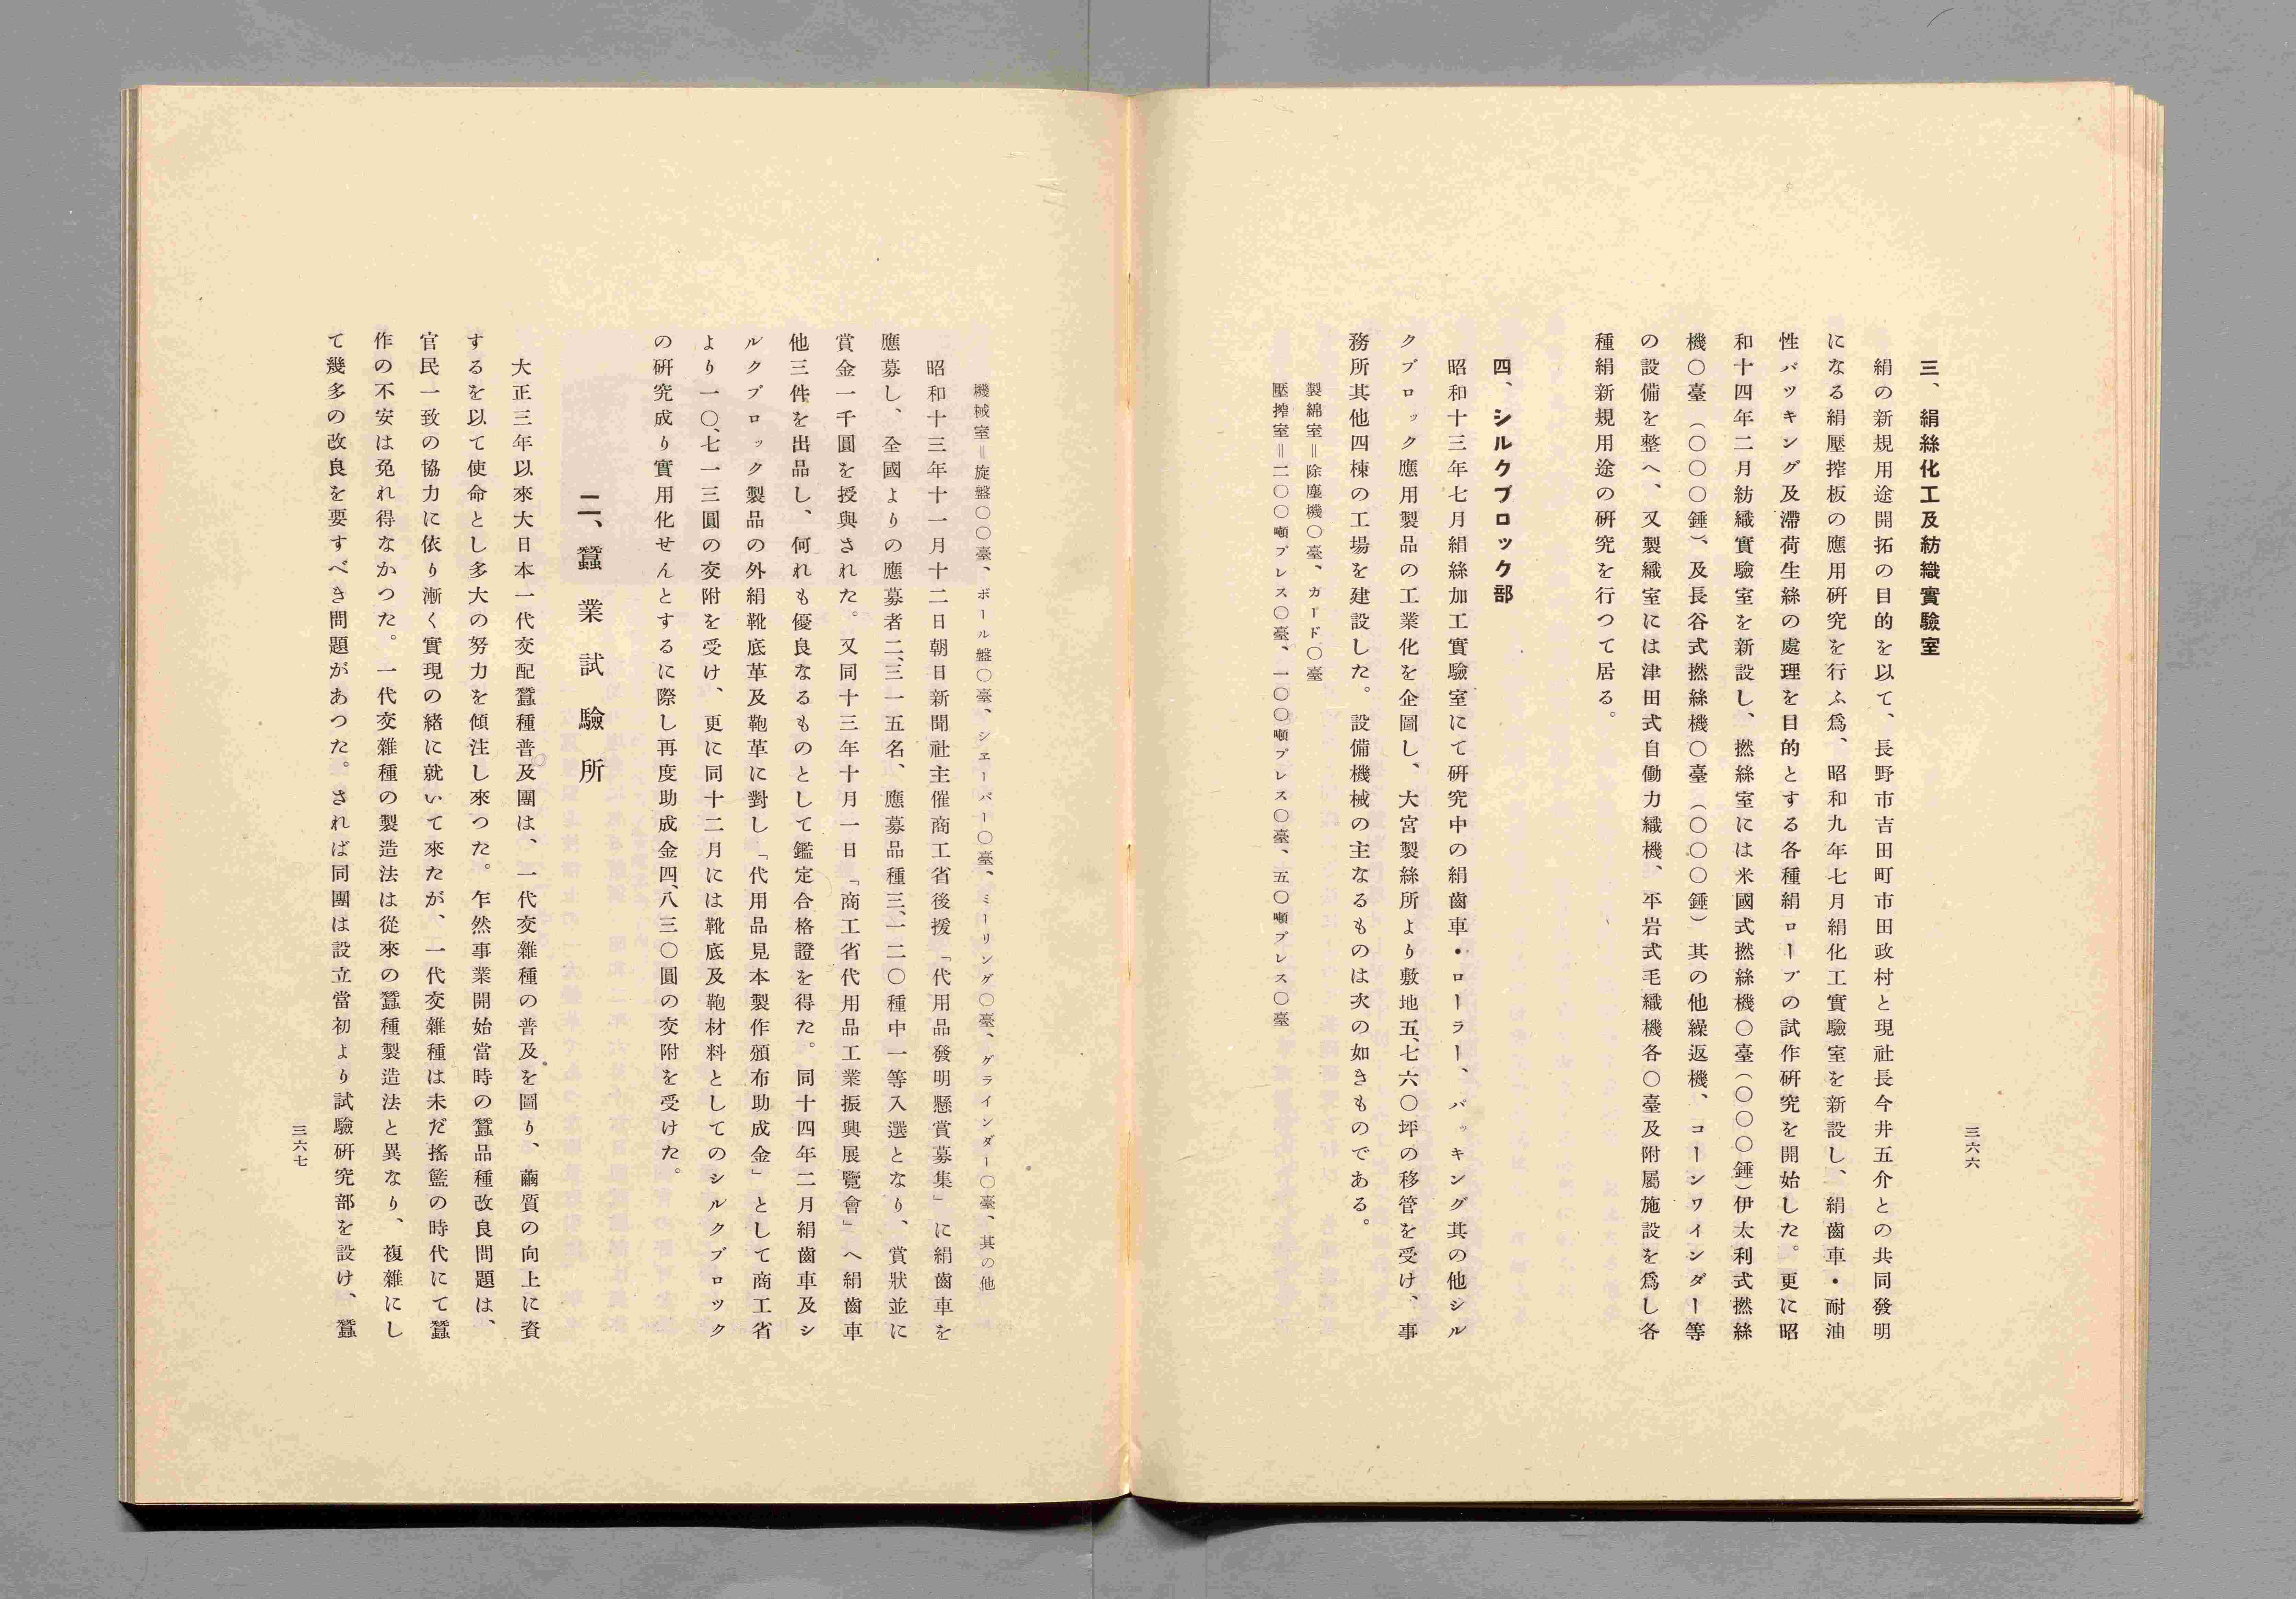 三、絹絲化工及紡織實驗室
絹の新規用途開拓の目的を以て、長野市吉田町市田政村と現社長今井五介との共同發明
になる絹壓搾板の應用研究を行ふ爲、昭和九年七月絹化工實驗室を新設し、絹齒車・耐油
性パツキング及滯荷生絲の處理を目的とする各種絹ロープの試作研究を開始した。更に昭
和十四年二月紡織實驗室を新設し、撚絲室には米國式撚絲機〇臺(〇〇〇錘)伊太利式撚絲
機〇臺(〇〇〇錘)、及長谷式撚絲機〇臺(〇〇〇錘)其の他繰返機、コーンワインダー等
の設備を整へ、又製織室には津田式自働力織機、平岩式毛織機各〇臺及附屬施設を爲し各
種絹新規用途の研究を行つて居る。
四、シルクブロック部
昭和十三年七月絹絲加工實驗室にて研究中の絹齒車・ローラー、パッキング其の他シル
クブロック應用製品の工業化を企圖し、大宮製絲所より敷地五、七六〇坪の移管を受け、事
務所其他四棟の工場を建設した。設備機械の主なるものは次の如きものである。
製綿室=除塵機〇臺、カード〇臺
壓搾室=二〇〇噸プレス〇臺、一〇〇噸プレス〇臺、五〇噸プレス〇臺
三六六
機械室=旋盤〇〇臺、ボール盤〇臺、シエーパー〇臺、ミーリング〇臺、グラインダー〇臺、其の他
昭和十三年十一月十二日朝日新聞社主催商工省後援「代用品發明懸賞募集」に絹齒車を
應募し、全國よりの應募者二、三一五名、應募品種三、一二〇種中一等入選となり、賞狀並に
賞金一千圓を授與された。又同十三年十月一日「商工省代用品工業振興展覽會」へ絹齒車
他三件を出品し、何れも優良なるものとして鑑定合格證を得た。同十四年二月絹齒車及シ
ルクブロック製品の外絹靴底革及鞄革に對し「代用品見本製作頒布助成金」として商工省
より一〇、七一三圓の交附を受け、更に同十二月には靴底及鞄材料としてのシルクブロック
の研究成り實用化せんとするに際し再度助成金四、八三〇圓の交附を受けた。
二、蠶業試驗所
大正三年以來大日本一代交配蠶種普及團は、一代交雜種の普及を圖り、繭質の向上に資
するを以て使命とし多大の努力を傾注し來つた。乍然事業開始當時の蠶品種改良問題は、
官民一致の協力に依り漸く實現の緒に就いて來たが、一代交雜種は未だ搖籃の時代にて蠶
作の不安は免れ得なかつた。一代交雜種の製造法は從來の蠶種製造法と異なり、複雜にし
て幾多の改良を要すべき問題があつた。されば同團は設立當初より試驗研究部を設け、蠶
三六七